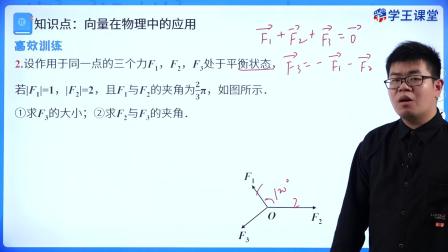 知识点:向量在物理中的应用
学王课堂
高效训练
F₁+F₂+F₃=0
2.设作用于同一点的三个力F₁,F₂,F₃处于平衡状态,
F₃=-F₁-F₂
若|F₁|=1,|F₂|=2,且F₁与F₂的夹角为2/3π,如图所示.
①求F₃的大小;②求F₂与F₃的夹角.
F₁
120°
2
O
F₂
F₃